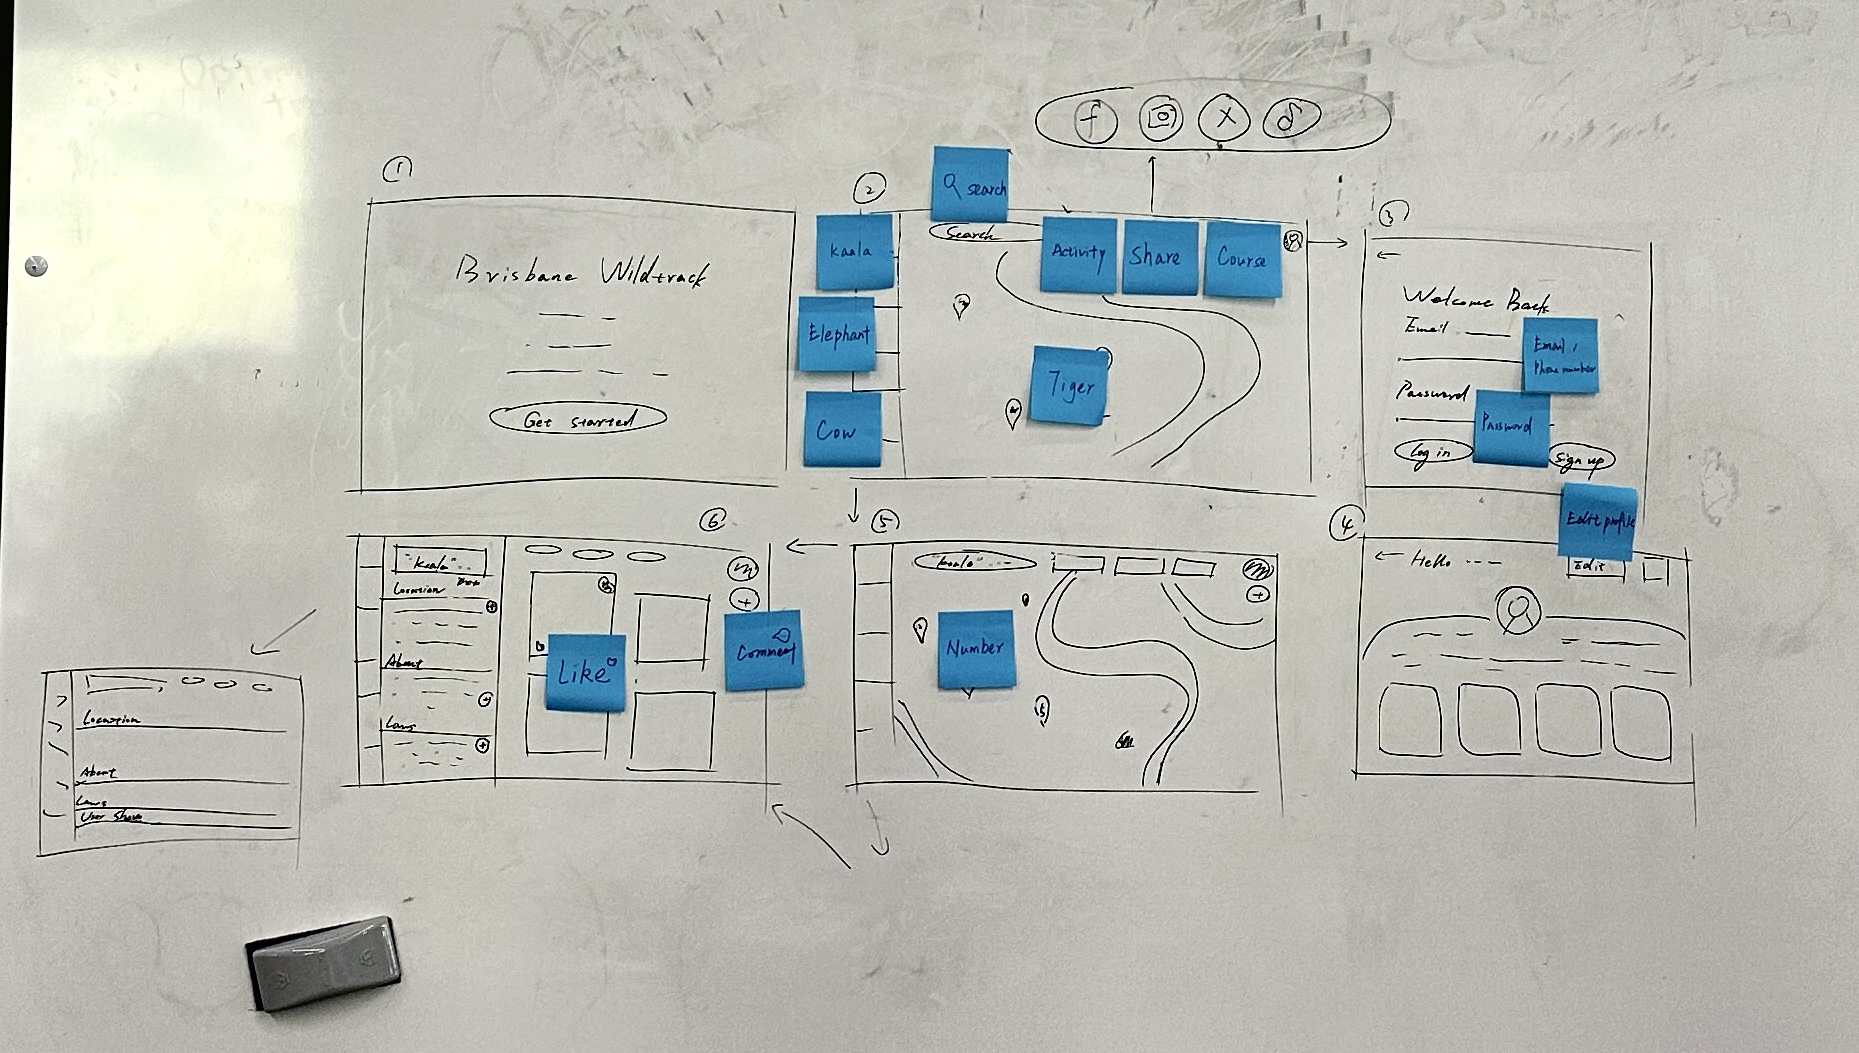 ①
Brisbane Wildtrack
Get started
②
Kaala
Elephant
Cow
f
X
search
Search
Activity
Share
Course
Tiger
③
Welcome Back
Email
Email,
Phone number
Password
Password
Log in
Sign up
④
Hello
Edit profile
Edit
⑤
"koala"
Number
⑥
"koala"
Location
About
Laws
Like
Comment
Location
About
Laws
User Share